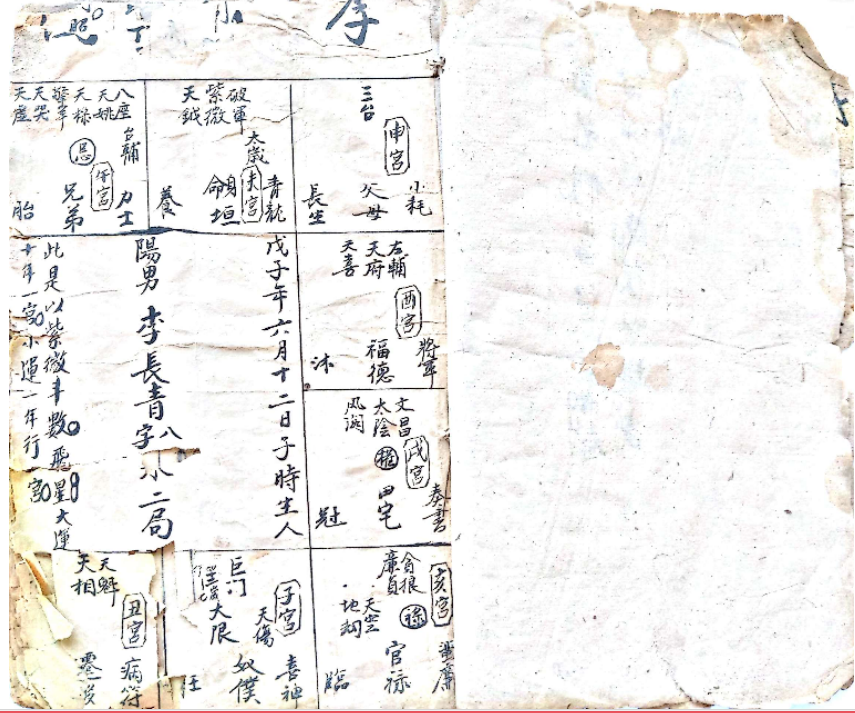 李
照
八座
天姚
天祿
華車
天哭
天虛
台輔
忌
午宮
力士
兄弟
胎
破軍
紫微
天鉞
太歲
未宮
青龍
身
命垣
養
三台
申宮
小耗
父母
長生
右輔
天府
天喜
酉宮
將軍
福德
沐
文昌
太陰
風閣
權
戌宮
奏書
田宅
冠
貪狼
廉貞
亥宮
祿
天空
地劫
官祿
臨
巨門
子宮
天傷
大限
喜神
奴僕
旺
天魁
天相
丑宮
病符
遷移
戊子年六月十二日子時生人
陽男 李長青八字水二局
此是以紫微斗數飛星大運
十年一宮小運一年行一宮